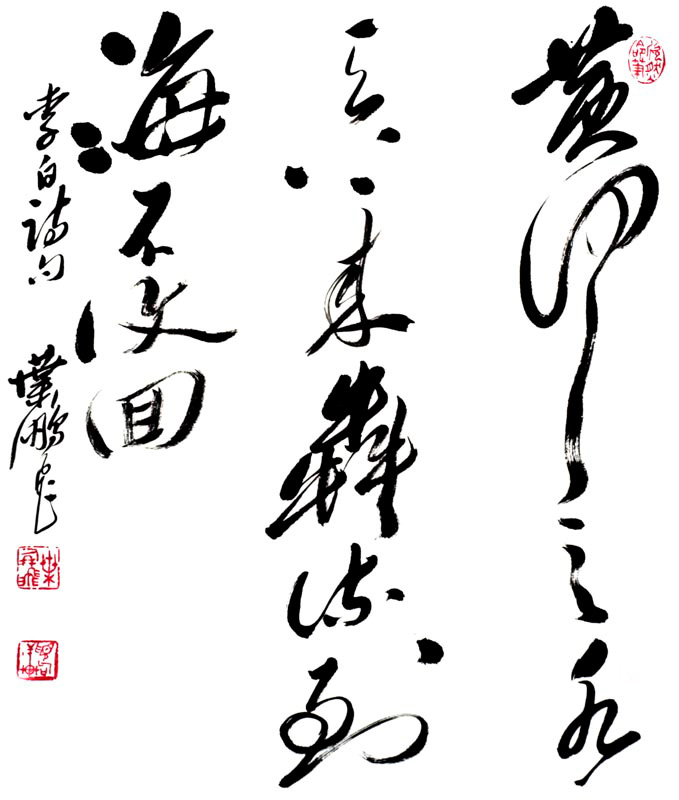 黄河之水
天上来犇流到
海不復回
李白詩句 葉鵬飛